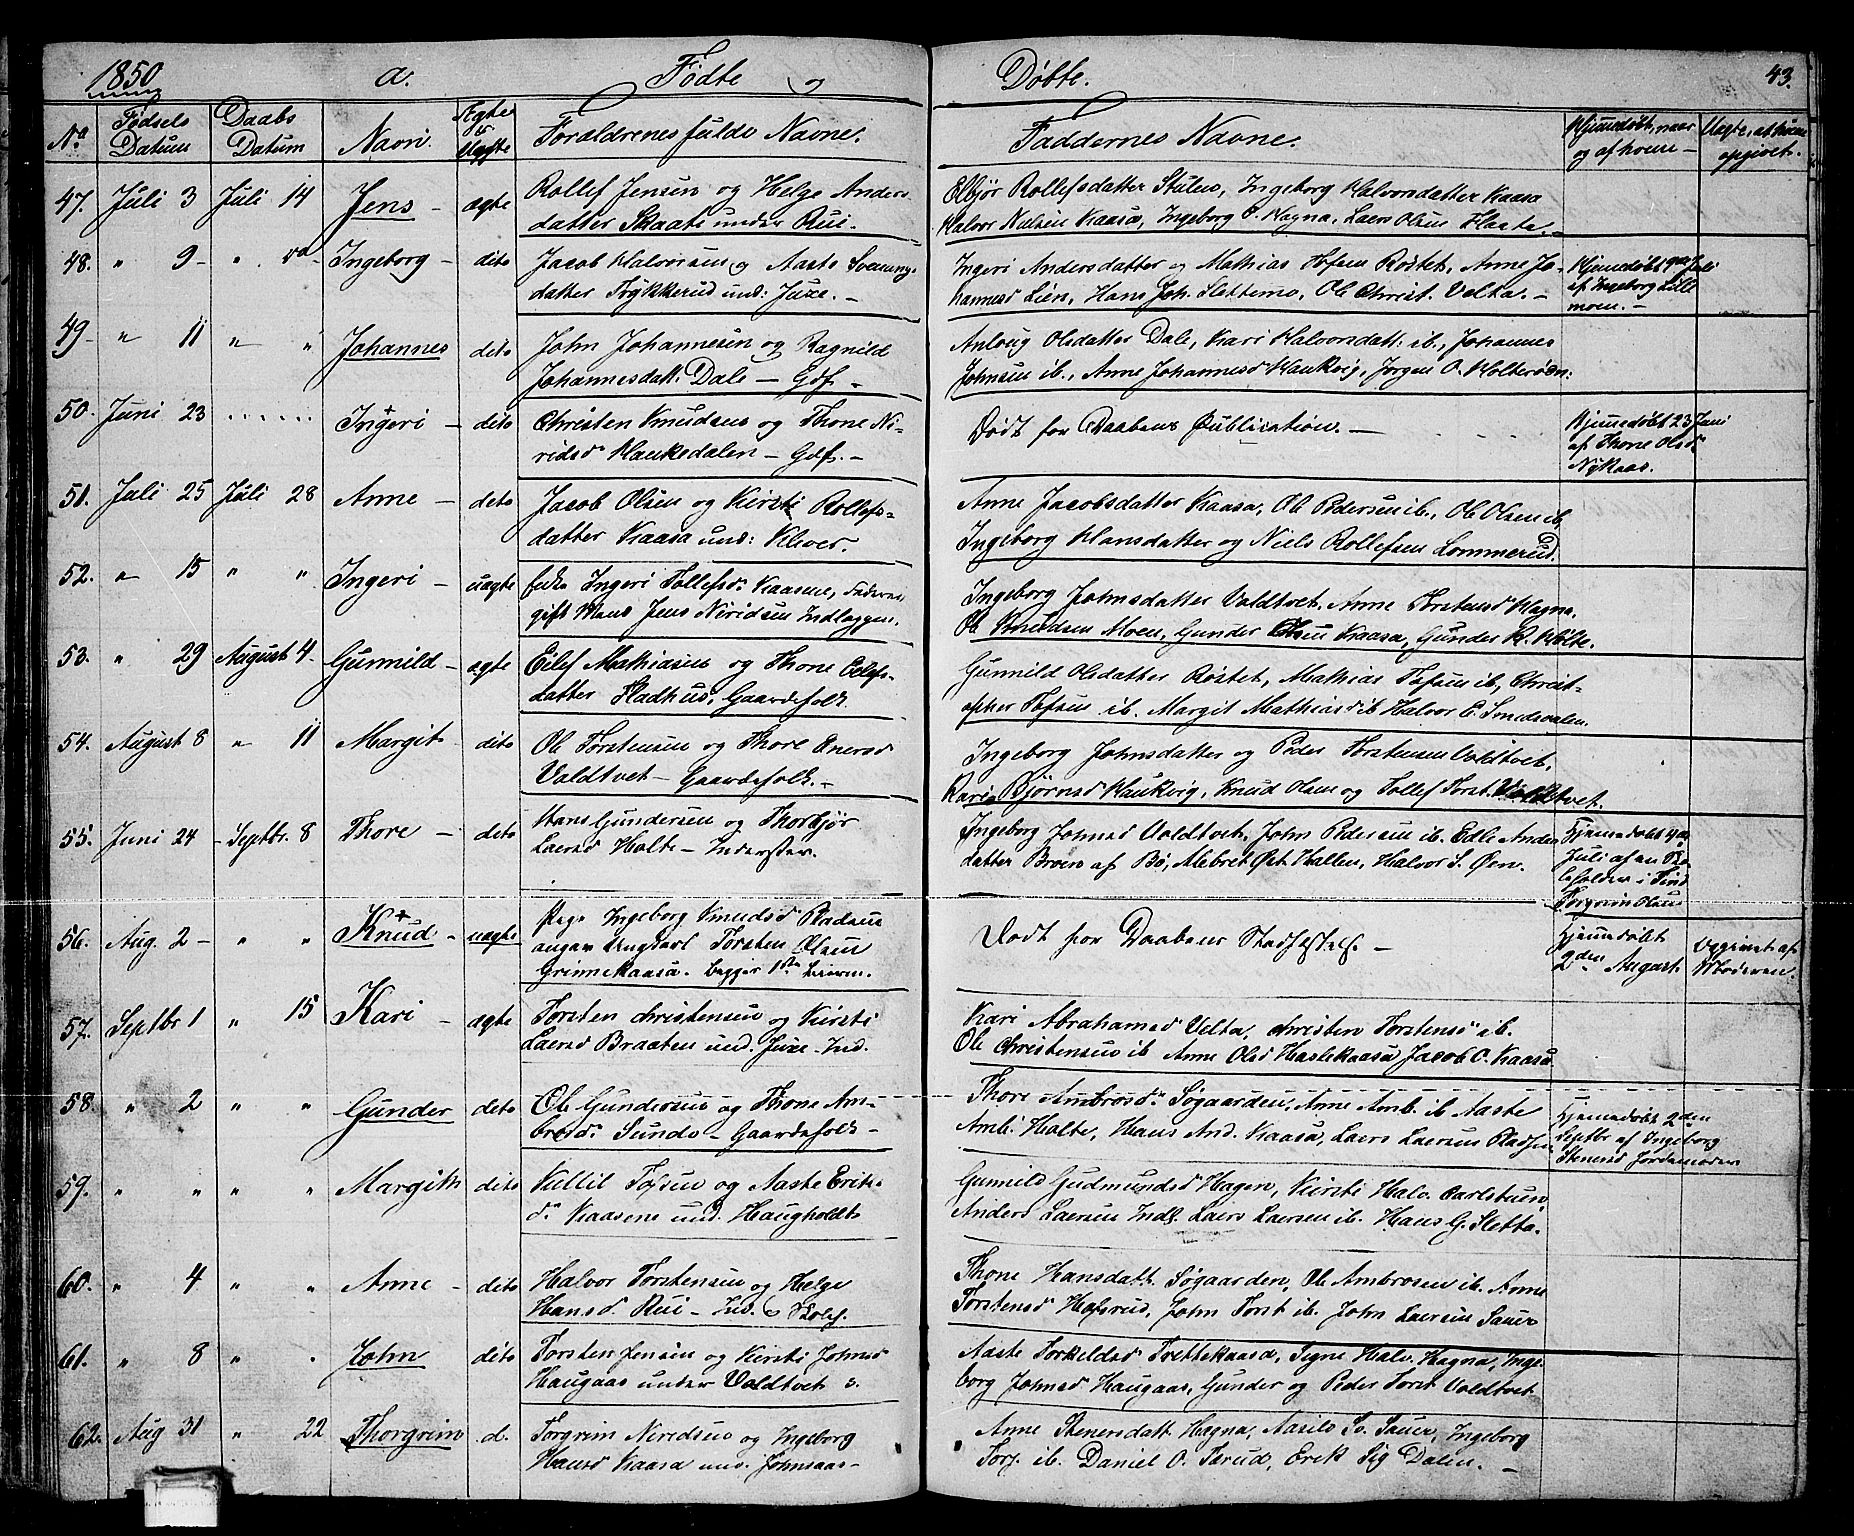 1850 a. Fødte og Døbte. 43.
No Fødsels Datum Daabs Datum Navn. Ægte el. Uægte Forældrenes fulde Navne. Faddernes Navne. Hjemmedøbt, naar og af hvem – Uægte, af hvem opgivet.
47. Juli 3 Juli 14 Jens – ægte
Rollef Jensen og Helge Anders
datter Skaate under Rui.
Elbjør Rollefsdatter Stulen, Ingeborg Halvorsdatter Kaasa
Halvor Nielsen Kaasa, Ingeborg O. Hagna, Laers Olsen
48. " 9 – " Ingeborg – dito
Jacob Halvorsen og Aaste Svennung
datter Tykkerud und: Juve. –
Ingeri Andersdatter og Mathias Tofsen Rostet, Anne Jo-
hannesd Lien, Hans Joh. Slettemo, Ole Christ. Velta. –
Hjemedøbt Juli
af Ingeborg Lille
moen. –
49 – " 11 " " Johannes dito
John Johannesen og Ragnild
Johannesdatt. Dale – Gdf. –
Anloug Olsdatter Dale, Kari Halvorsdatt. ib., Johannes
Johnsen ib., Anne Johannesd Haukvig, Jørgen O. Holterøen.
50. Juni 23 Ingeri – dito
Christen Knudsen og Thone Ni-
ridsd Haukedalen – Gdf. –
Dødt før Daabens Publication. –
Hjemedøbt 23 Juni
af Thone Olsd
Nykaas.
51. Juli 25 Juli 28 Anne – dito
Jacob Olsen og Kirsti Rollefs-
datter Kaasa und: Klever.
Anne Jacobsdatter Kaasa, Ole Pedersen ib., Ole Olsen ib,
Ingeborg Hansdatter og Niels Rollefsen Lommerud.
52. " 15 " " Ingeri – uægte
Ingeri Tollefsd. Kaasene,
gift Mand Jens Niridsen
Ingeborg Johnsdatter Valdtvet, Anne Torstensd Hagna,
Ole Knudsen Moen, Gunder Olsen Kaasa, Gunder K. Holte.
53. " 29 August 4. Gunnild – ægte
Eilef Mathiasen og Thone Eilefs-
datter Fladhus, Gaardefolk
Gunnild Olsdatter Rostet, Mathias Tofsen ib, Christ-
opher Tofsen ib. Margit Mathiasd ib Halvor E. Smedsdalen.
54. August 8 " 11 Margit – dito
Ole Torstensen og Thore Enersd
Valdtvet – Gaardefolk. –
Ingeborg Johnsdatter og Peder Torstensen Valdtvet,
Kari Bjørnsd Haukvig, Knud Olsen og Tollef Torst. Valdtvet.
55. Juni 24 – Septbr. 8 Thore – dito
Hans Gundersen og Thorbjør
Laersd Holte – Inderster.
Ingeborg Johnsd Valdtvet, John Pedersen ib. Edle Anders
datter Broen af Bø, Mebret Øst. Hallen, Halvor S. Øen.
Hjemmedøbt 4de
Juli af en
i Tind
Torgrim Olsen
56. Aug. 2 – " " Knud – uægte
Pige Ingeborg Knudsd Pladsen
Ungkarl Torsten Olsen
Grinnekaasa. begges 1ste Leierm.
Dødt før Daabens Stadfæstelse –
Hjemmedøbt
2den August.
Opgivet af
Moderen.
57. Septbr 1 " 15 Kari – ægte
Torsten Christensen og Kirsti
Laersd Braaten und. Juve – Ind.
Kari Abrahamsd Velta, Christen Torstensd ib.
Ole Christensen ib Anne Olsd Haslekaasa Jacob O. Kaasa
58. " 2 " " Gunder dito
Ole Gundersen og Thone Am-
brosd. Sunde – Gaardefolk –
Thore Ambrosd. Søgaarden, Anne Amb. ib Aaste
Amb. Holte, Hans And. Kaasa, Laers Laersen Pladsen
Hjemmedøbt 2den
Septbr af Ingeborg
Stenersd Jordemoder
59. " " " " Margith dito
Killil Tofsen og Aaste Eriks-
d. Kaasene und. Haugholdt
Gunnild Gudmundsd Hagen, Kirsti Halv. Carlstuen,
Anders Laersen Indl. Laers Laersen ib. Hans G. Sletta.
60. " 4 " " Anne – dito
Halvor Torstensen og Helge
Hansd Rui – Ind.
Thone Hansdatt Søgaarden, Ole Ambrosen ib. Anne
Torstensd Hofsrud, John Torst ib. John Laersen Sauer
61. " 8 " " John dito
Torsten Jensen og Kirsti Johnsd
Haugaas under Valdtvet
Aaste Torkeldsd Trettekaasa, Signe Halv. Hagna, Inge-
borg Johnsd Haugaas, Gunder og Peder Torst Valdtvet
62. Aug 31 " 22 Thorgrim d.
Torgrim Niredsen og Ingeborg
Hansd Kaasa und. Johnsaas –
Anne Stenersdatt Hagna, Aasild So. Sauer, Ingeborg
Torj. ib. Daniel O. Tarud, Erik Sig Dalen. –